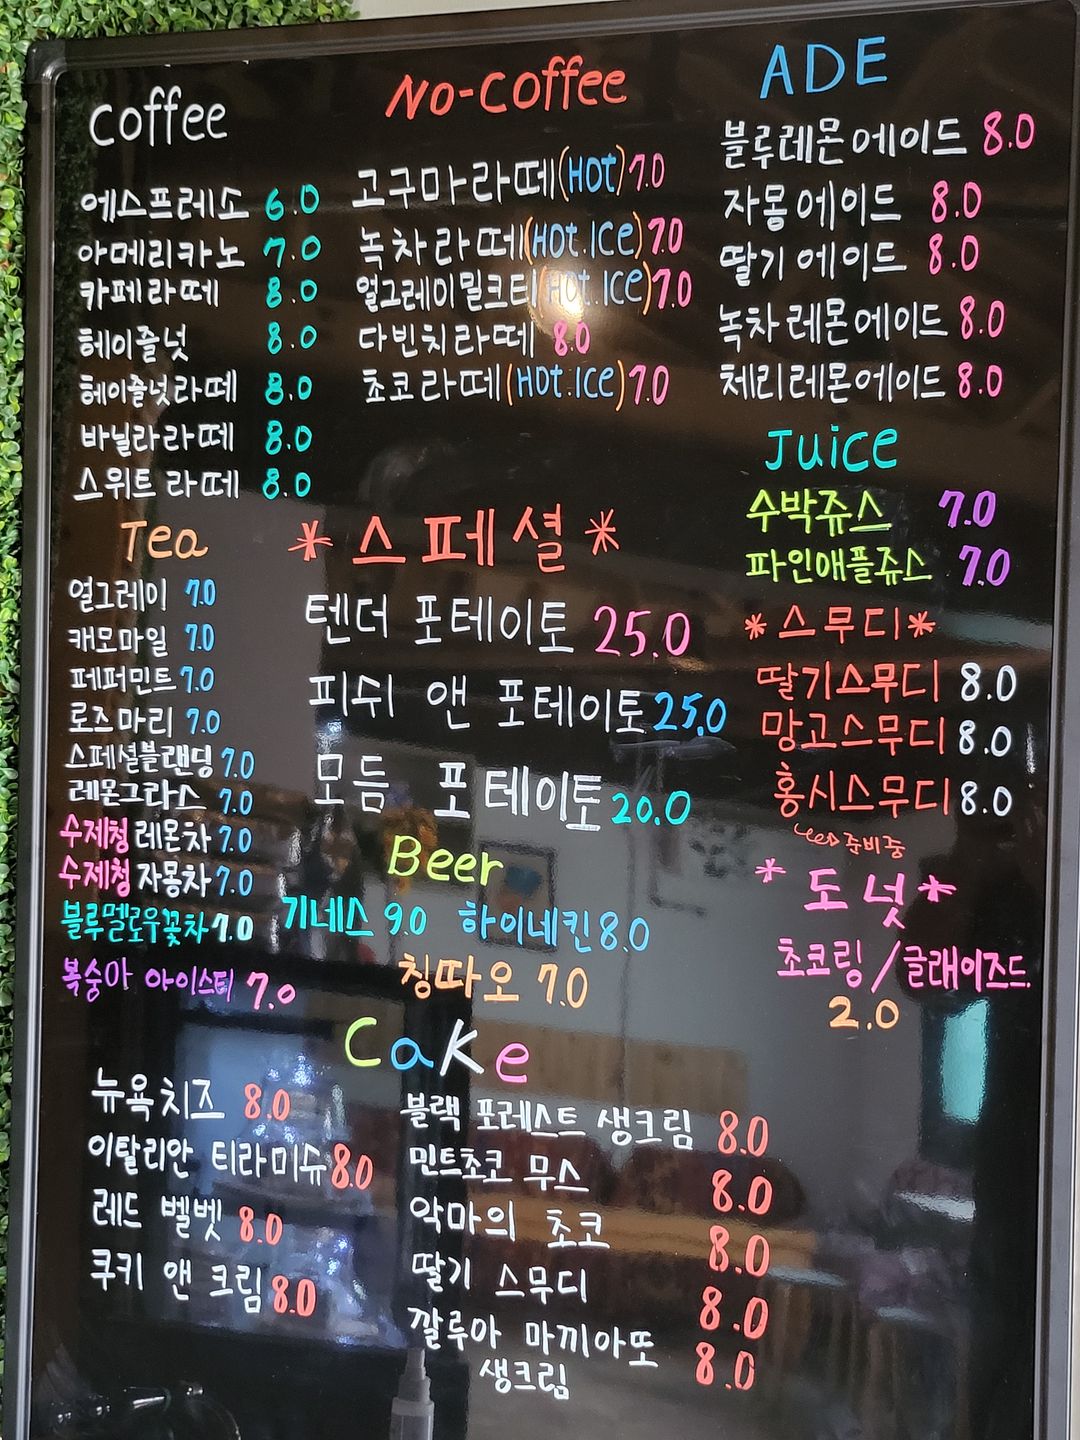 Coffee
에스프레소 6.0
아메리카노 7.0
카페라떼 8.0
헤이즐넛 8.0
헤이즐넛라떼 8.0
바닐라라떼 8.0
스위트라떼 8.0
No-Coffee
고구마라떼(HOt) 7.0
녹차라떼(HOt.ICe) 7.0
얼그레이밀크티(HOt.ICe) 7.0
다빈치라떼 8.0
초코라떼(HOt.ICe) 7.0
ADE
블루레몬에이드 8.0
자몽에이드 8.0
딸기에이드 8.0
녹차레몬에이드 8.0
체리레몬에이드 8.0
Juice
수박쥬스 7.0
파인애플쥬스 7.0
Tea
얼그레이 7.0
캐모마일 7.0
페퍼민트 7.0
로즈마리 7.0
스페셜블랜딩 7.0
레몬그라스 7.0
수제청 레몬차 7.0
수제청 자몽차 7.0
블루멜로우꽃차 7.0
복숭아 아이스티 7.0
*스페셜*
텐더 포테이토 25.0
피쉬 앤 포테이토 25.0
모듬 포테이토 20.0
*스무디*
딸기스무디 8.0
망고스무디 8.0
홍시스무디 8.0
준비중
Beer
기네스 9.0 하이네킨 8.0
칭따오 7.0
*도넛*
초코링/글래이즈드
2.0
Cake
뉴욕치즈 8.0
이탈리안 티라미슈 8.0
레드 벨벳 8.0
쿠키 앤 크림 8.0
블랙 포레스트 생크림 8.0
민트초코 무스 8.0
악마의 초코 8.0
딸기 스무디 8.0
깔루아 마끼아또 8.0
생크림